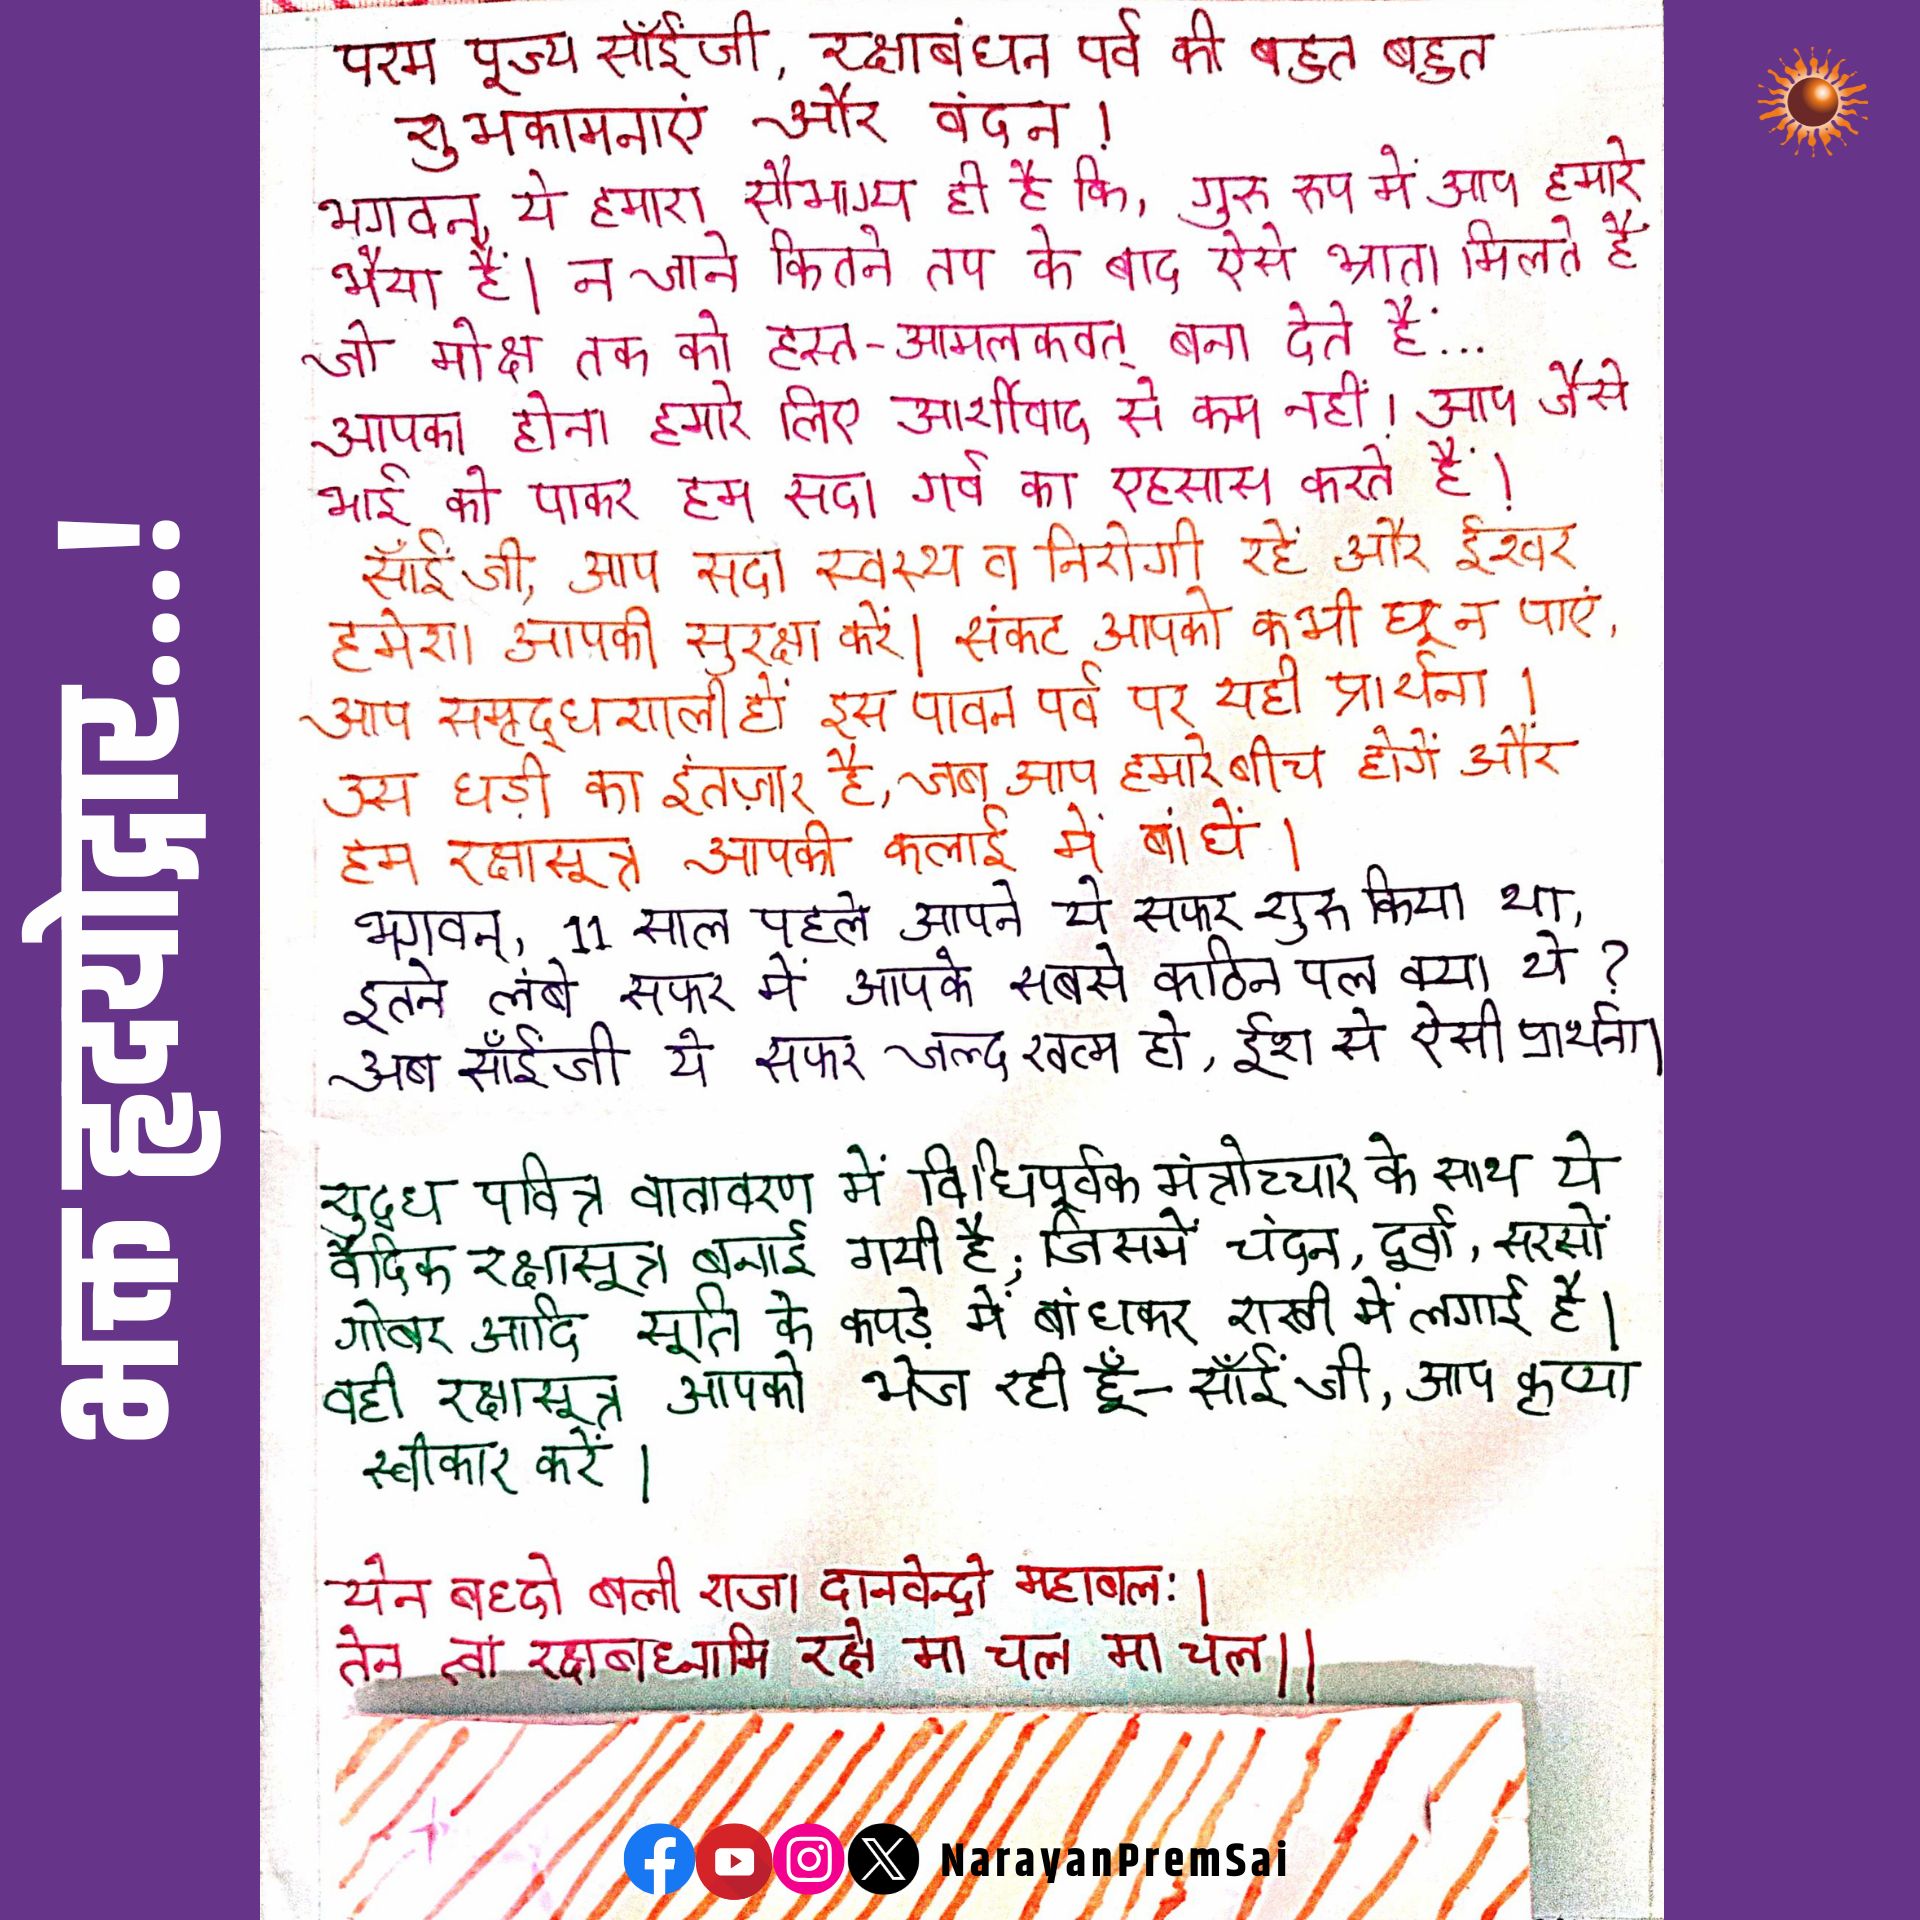 भक्त हृदयोद्गार...!
परम पूज्य साँईंजी, रक्षाबंधन पर्व की बहुत बहुत
शुभकामनाएं और वंदन !
भगवन्, ये हमारा सौभाग्य ही है कि, गुरु रुप में आप हमारे
भैया हैं। न जाने कितने तप के बाद ऐसे भ्राता मिलते हैं
जो मोक्ष तक को हस्त-आमलकवत् बना देते हैं...
आपका होना हमारे लिए आर्शीवाद से कम नहीं। आप जैसे
भाई को पाकर हम सदा गर्व का एहसास करते हैं।
साँईं जी, आप सदा स्वस्थ व निरोगी रहें और ईश्वर
हमेशा आपकी सुरक्षा करें। संकट आपको कभी छू न पाएं,
आप समृद्धशाली हों इस पावन पर्व पर यही प्रार्थना ।
उस घड़ी का इंतज़ार है, जब आप हमारे बीच होगें और
हम रक्षासूत्र आपकी कलाई में बांधें ।
भगवन्, 11 साल पहले आपने ये सफर शुरु किया था,
इतने लंबे सफर में आपके सबसे कठिन पल क्या थे ?
अब साँईंजी ये सफर जल्द खत्म हो, ईश से ऐसी प्रार्थना।
शुद्ध पवित्र वातावरण में विधिपूर्वक मंत्रोच्चार के साथ ये
वैदिक रक्षासूत्र बनाई गयी है; जिसमें चंदन, दूर्वा, सरसों
गोबर आदि सूति के कपड़े में बांधकर राखी में लगाई है।
वही रक्षासूत्र आपको भेज रही हूँ- साँईं जी, आप कृप्या
स्वीकार करें ।
येन बध्दो बली राजा दानवेन्द्रो महाबलः।
तेन त्वां रक्षबाध्नामि रक्षे मा चल मा चल।।
NarayanPremSai